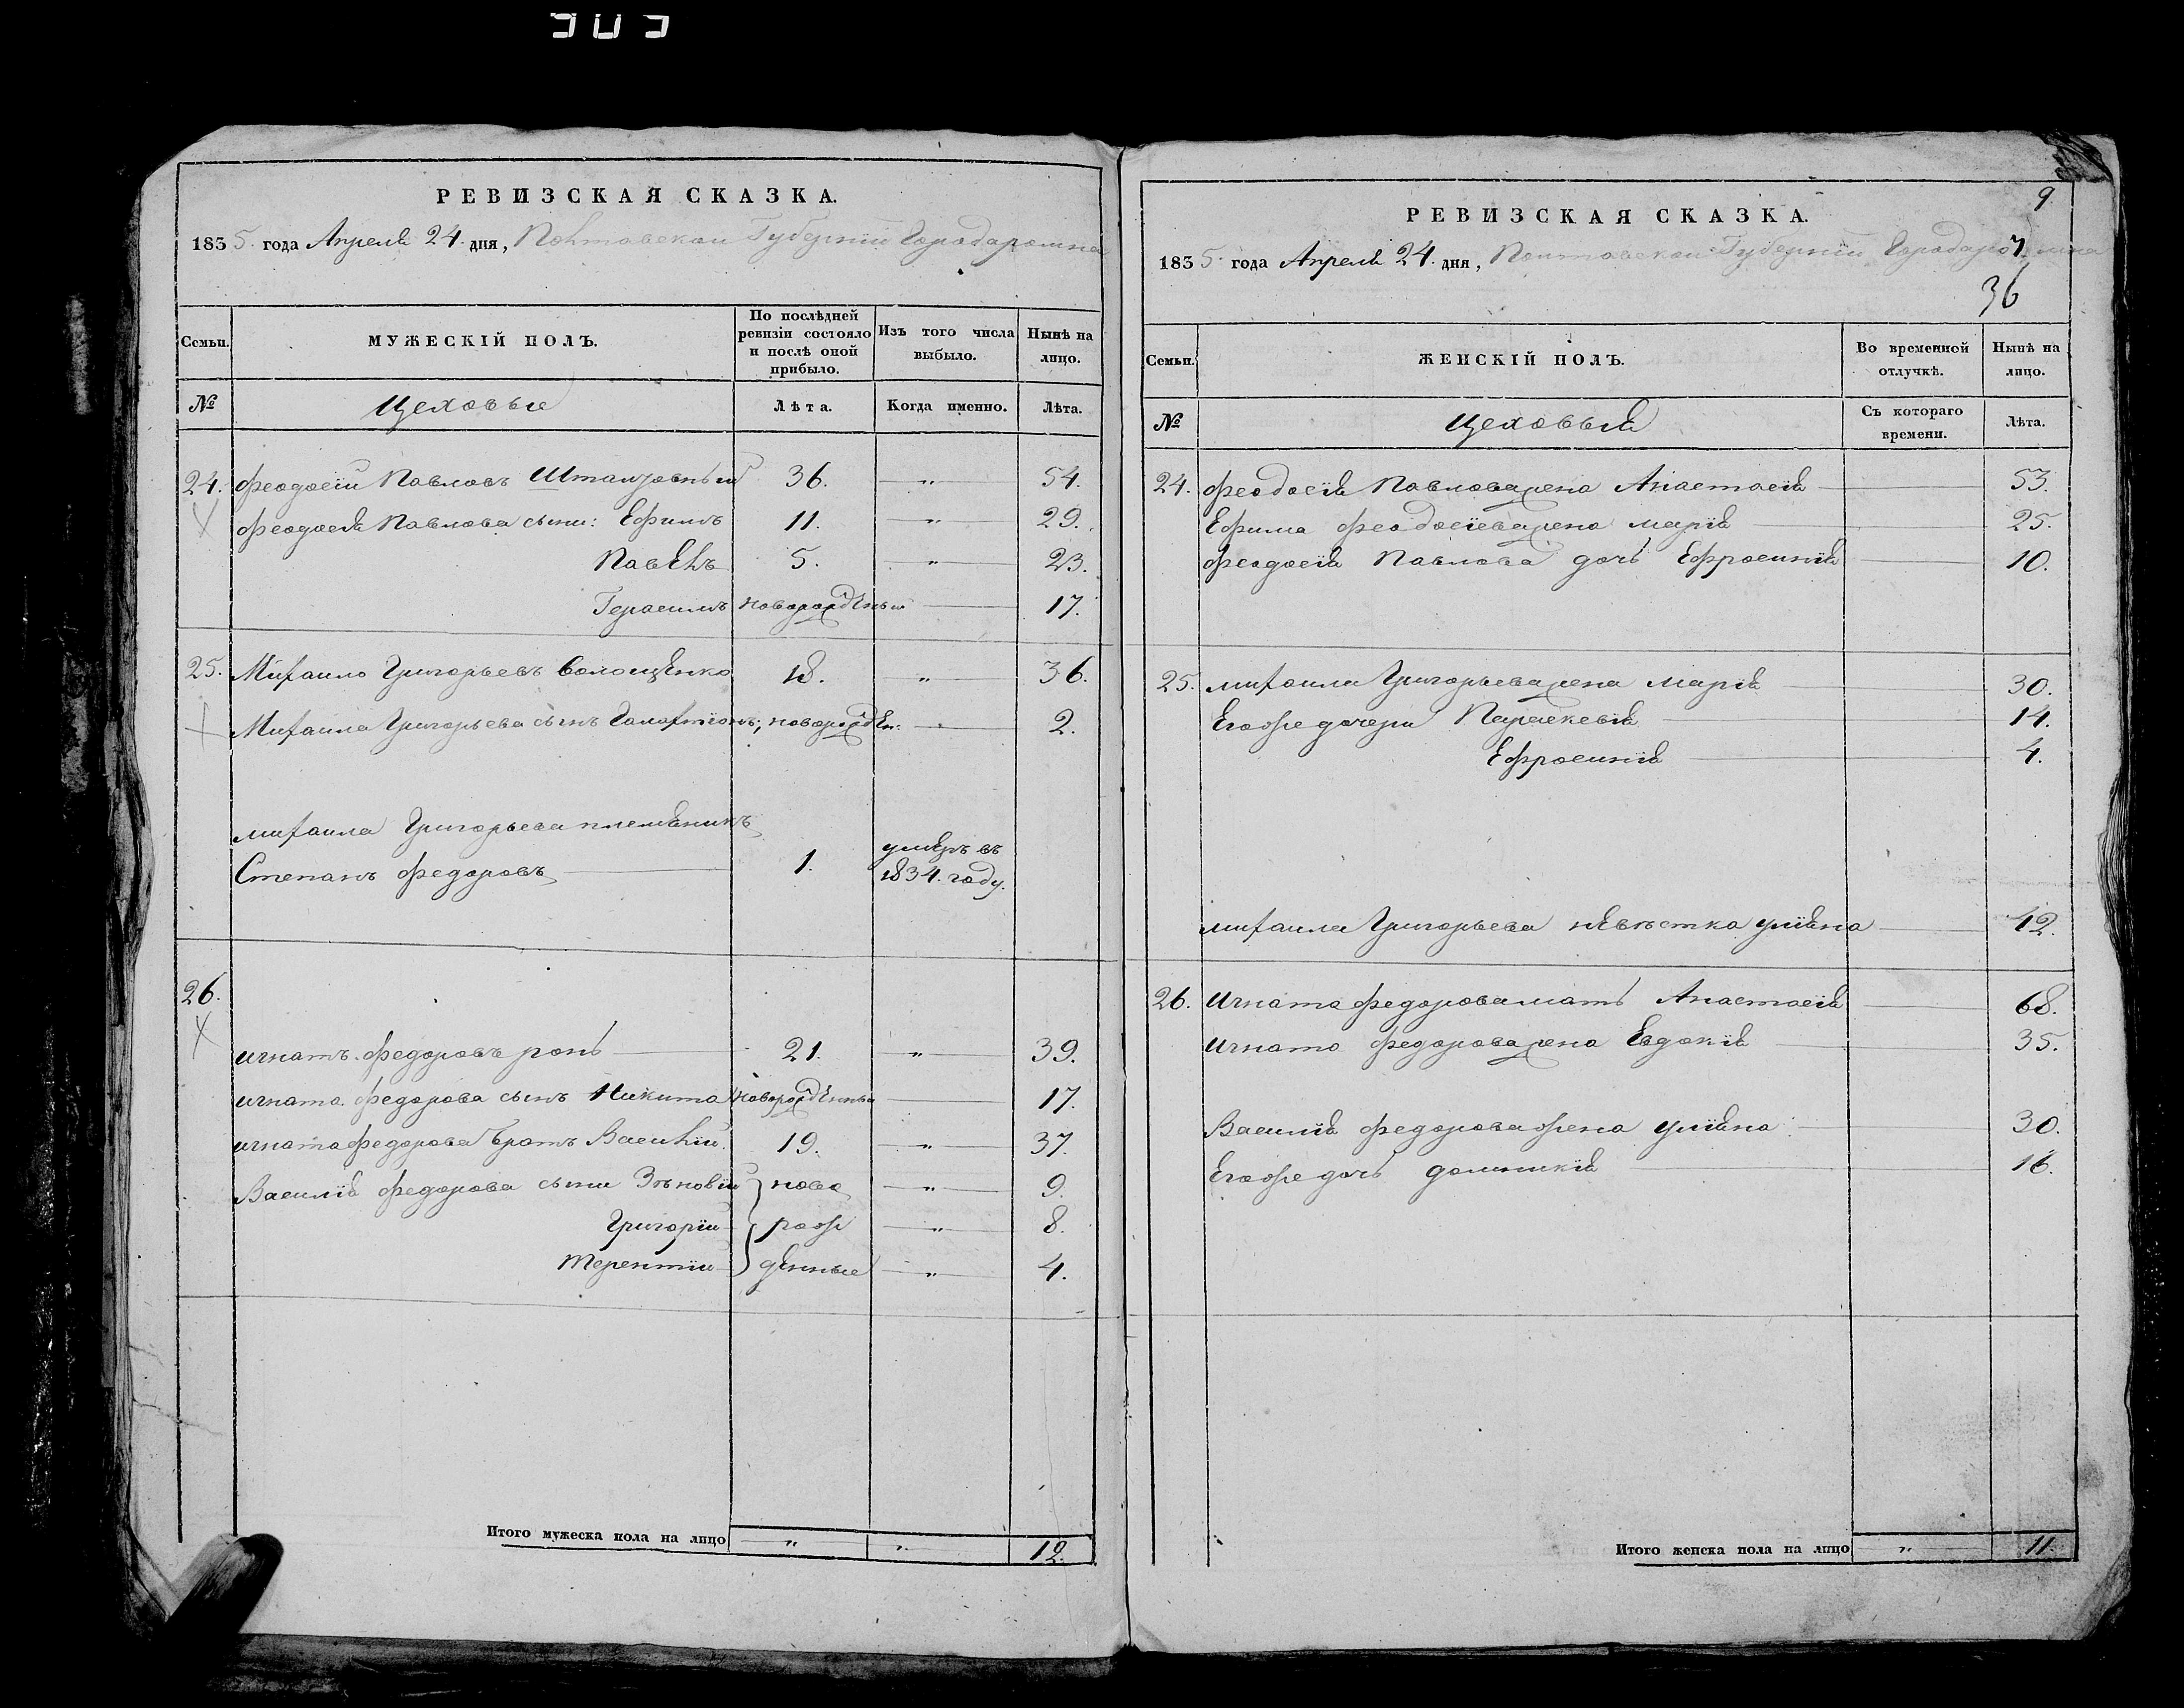 РЕВИЗСКАЯ СКАЗКА.
1835. года Апреля 24. дня, Полтавской Губернiи Города Ромна
Семьи.
МУЖЕСКІЙ ПОЛЪ.
По послѣдней ревизіи состояло и послѣ оной прибыло.
Изъ того числа выбыло.
Нынѣ на лицо.
№
Цеховые
Лѣта.
Когда именно.
Лѣта.
24. Феодосiй Павловъ 36. " 54.
Феодосiя Павлова сыни: Ефимъ 11. " 29.
Павелъ 5. " 23.
Герасимъ новорожденый 17.
25. Михайло Григорьевъ Волощенко 18. " 36.
Михайла Григорьева сынъ Галактiонъ; новорожден: " 2.
михайла Григорьева племяникъ
Степанъ Федоровъ 1. умеръ въ 1834. году.
26.
игнатъ Федоровъ 21. " 39.
игната Федорова сынъ Никита новорожденный 17.
игната Федорова братъ Василiй. 19. " 37.
Василiя Федорова сыни Зѣновiй ново " 9.
Григорiй рож " 8.
Терентiй денные " 4.
Итого мужеска пола на лицо " " 12.
9
РЕВИЗСКАЯ СКАЗКА.
1835. года Апреля 24. дня, Полтавской Губернiи Города Ромна
7.
36
Семьи.
ЖЕНСКІЙ ПОЛЪ.
Во временной отлучкѣ.
Нынѣ на лицо.
№
Цеховыя
Съ котораго времени.
Лѣта.
24. Феодосiя Павлова жена Анастасiя 53.
Ефима Феодосiева жена марiя 25.
Феодосiя Павлова дочь Ефросинiя 10.
25. михайла Григорьева жена марiя 30.
Егоже дочери Параскевiя 14.
Ефросинiя 4.
михайла Григорьева невѣстка улiяна 42.
26. Игната Федорова мать Анастасiя 68.
Игната Федорова жена Евдокiя 35.
Василiя Федорова жена улiяна 30.
Егоже дочь домникiя 16.
Итого женска пола на лицо " 11.